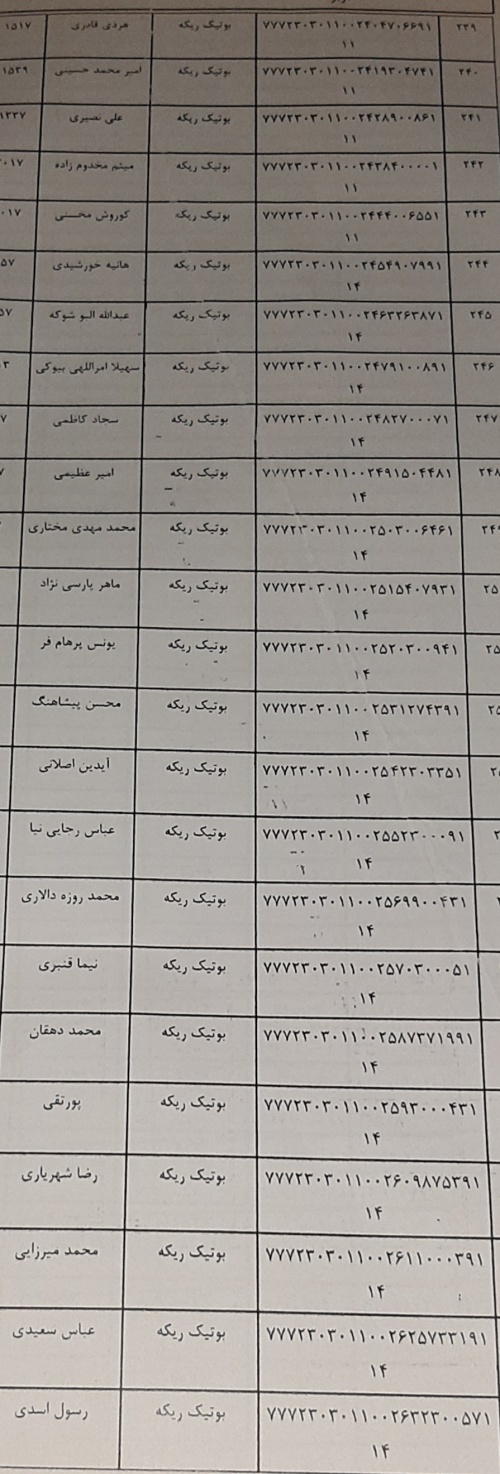 ۲۳۹ ۷۷۷۲۳۰۳۰۱۱۰۰۲۴۰۴۷۰۶۶۹۱ بوتیک ریکه هردی قادری ۱۵۱۷
۱۱
۲۴۰ ۷۷۷۲۳۰۳۰۱۱۰۰۲۴۱۹۳۰۴۷۴۱ بوتیک ریکه امیر محمد حسینی ۱۵۳۹
۱۱
۲۴۱ ۷۷۷۲۳۰۳۰۱۱۰۰۲۴۲۸۹۰۰۸۶۱ بوتیک ریکه علی نصیری ۱۲۳۷
۱۱
۲۴۲ ۷۷۷۲۳۰۳۰۱۱۰۰۲۴۳۸۴۰۰۰۰۱ بوتیک ریکه میثم مخدوم زاده ۰۱۷
۱۱
۲۴۳ ۷۷۷۲۳۰۳۰۱۱۰۰۲۴۴۴۰۰۶۵۵۱ بوتیک ریکه کوروش محسنی ۰۱۷
۱۱
۲۴۴ ۷۷۷۲۳۰۳۰۱۱۰۰۲۴۵۴۹۰۷۹۹۱ بوتیک ریکه هانیه خورشیدی ۵۷
۱۴
۲۴۵ ۷۷۷۲۳۰۳۰۱۱۰۰۲۴۶۳۲۶۳۸۷۱ بوتیک ریکه عبدالله البو شوکه ۵۷
۱۴
۲۴۶ ۷۷۷۲۳۰۳۰۱۱۰۰۲۴۷۹۱۰۰۸۹۱ بوتیک ریکه سهیلا امراللهی بیوکی ۳
۱۴
۲۴۷ ۷۷۷۲۳۰۳۰۱۱۰۰۲۴۸۲۷۰۰۰۷۱ بوتیک ریکه سجاد کاظمی ۷
۱۴
۲۴۸ ۷۷۷۲۳۰۳۰۱۱۰۰۲۴۹۱۵۰۴۴۸۱ بوتیک ریکه امیر عظیمی ۷
۱۴
۷۷۷۲۳۰۳۰۱۱۰۰۲۵۰۳۰۰۶۴۶۱ بوتیک ریکه محمد مهدی مختاری
۱۴
۷۷۷۲۳۰۳۰۱۱۰۰۲۵۱۵۴۰۷۹۳۱ بوتیک ریکه ماهر پارسی نژاد
۱۴
۷۷۷۲۳۰۳۰۱۱۰۰۲۵۲۰۳۰۰۹۴۱ بوتیک ریکه یونس پرهام فر
۱۴
۷۷۷۲۳۰۳۰۱۱۰۰۲۵۳۱۲۷۴۳۹۱ بوتیک ریکه محسن پیشاهنگ
۱۴
۷۷۷۲۳۰۳۰۱۱۰۰۲۵۴۲۳۰۳۳۵۱ بوتیک ریکه آیدین اصلانی
۱۴
۷۷۷۲۳۰۳۰۱۱۰۰۲۵۵۲۳۰۰۰۹۱ بوتیک ریکه عباس رجایی نیا
۱۴
۷۷۷۲۳۰۳۰۱۱۰۰۲۵۶۹۹۰۰۴۳۱ بوتیک ریکه محمد روزه دالاری
۱۴
۷۷۷۲۳۰۳۰۱۱۰۰۲۵۷۰۳۰۰۰۵۱ بوتیک ریکه نیما قنبری
۱۴
۷۷۷۲۳۰۳۰۱۱۰۰۲۵۸۷۳۷۱۹۹۱ بوتیک ریکه محمد دهقان
۱۴
۷۷۷۲۳۰۳۰۱۱۰۰۲۵۹۳۰۰۰۴۳۱ بوتیک ریکه پورتقی
۱۴
۷۷۷۲۳۰۳۰۱۱۰۰۲۶۰۹۸۷۵۳۹۱ بوتیک ریکه رضا شهریاری
۱۴
۷۷۷۲۳۰۳۰۱۱۰۰۲۶۱۱۰۰۰۳۹۱ بوتیک ریکه محمد میرزایی
۱۴
۷۷۷۲۳۰۳۰۱۱۰۰۲۶۲۵۷۳۳۱۹۱ بوتیک ریکه عباس سعیدی
۱۴
۷۷۷۲۳۰۳۰۱۱۰۰۲۶۳۲۳۰۰۵۷۱ بوتیک ریکه رسول اسدی
۱۴